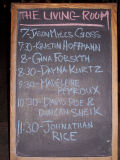 THE LIVING ROOM
7-JASON MYLES GOSS
7:30-KRISTIN HOFFMANN
8-GINA FORSYTH
8:30-DAYNA KURTZ
9:30-MADELEINE
PEYROUX
10:30-DAVID POE &
DUNCAN SHEIK
11:30-JOHNATHAN
RICE